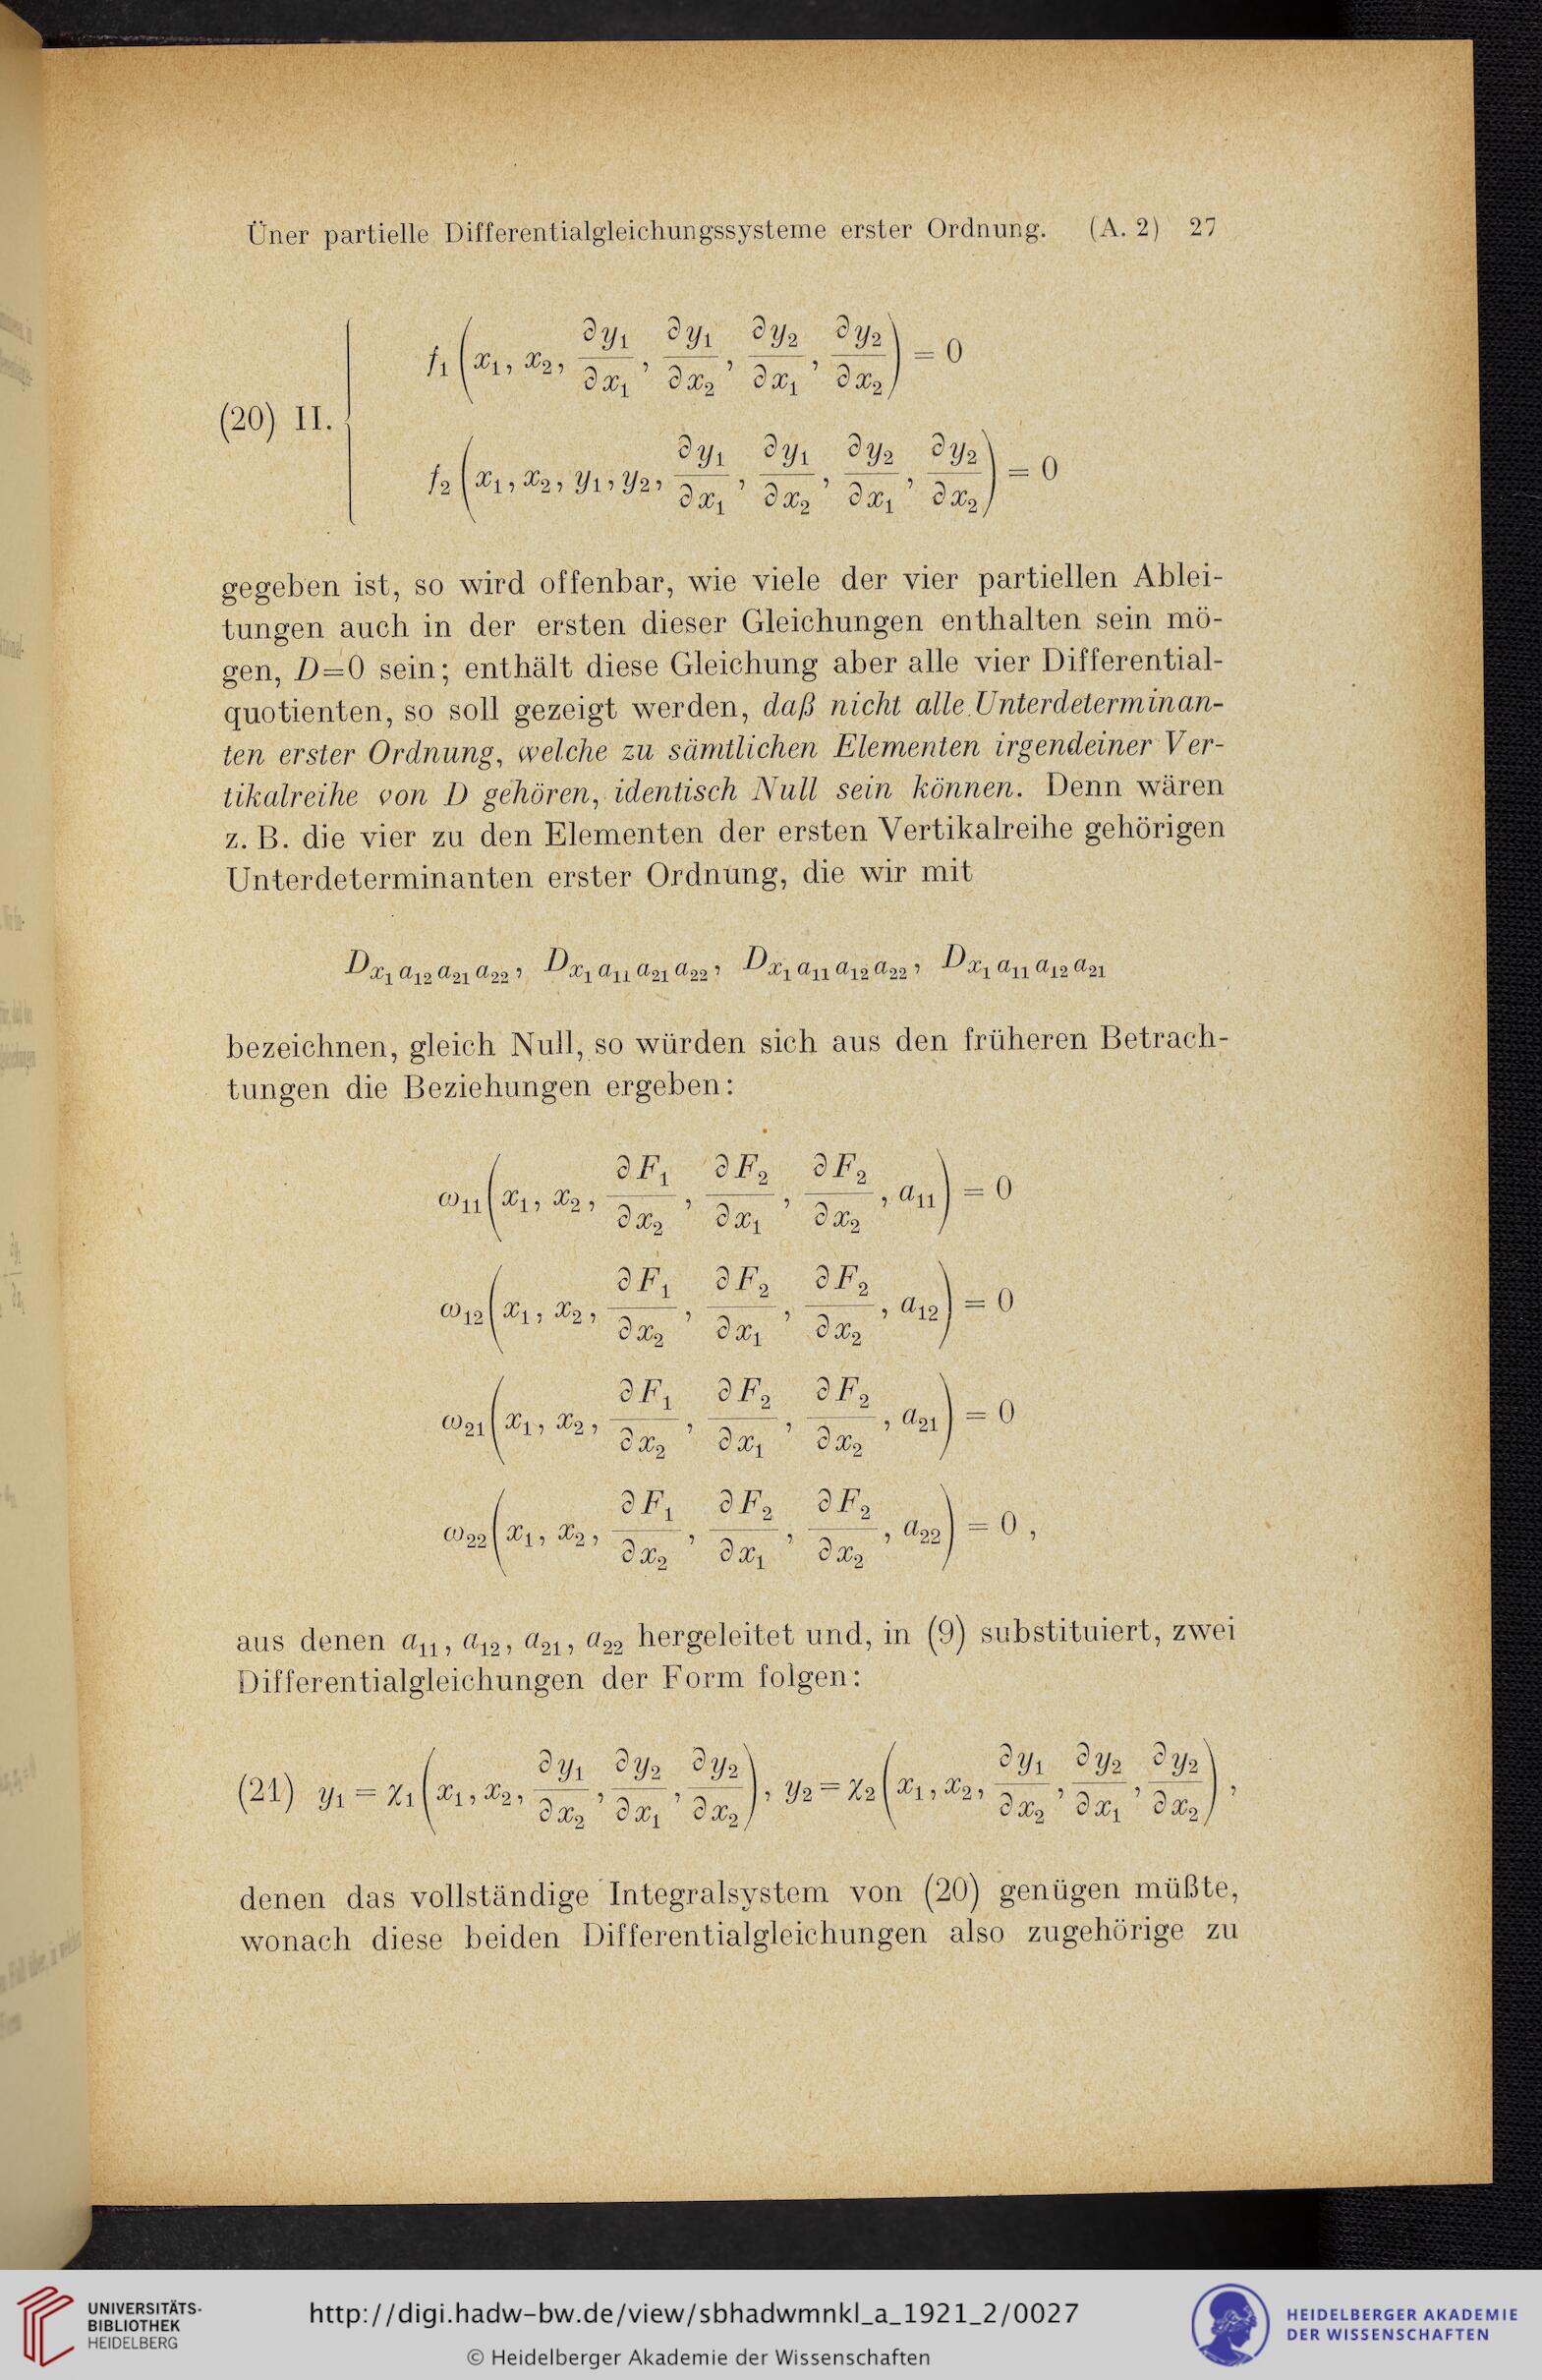 Üner partielle Differentialgleichungssysteme erster Ordnung. (A. 2) 27
(20) II. { f₁ (x₁, x₂, ∂y₁/∂x₁, ∂y₁/∂x₂, ∂y₂/∂x₁, ∂y₂/∂x₂) = 0
f₂ (x₁, x₂, y₁, y₂, ∂y₁/∂x₁, ∂y₁/∂x₂, ∂y₂/∂x₁, ∂y₂/∂x₂) = 0
gegeben ist, so wird offenbar, wie viele der vier partiellen Ablei-
tungen auch in der ersten dieser Gleichungen enthalten sein mö-
gen, D=0 sein; enthält diese Gleichung aber alle vier Differential-
quotienten, so soll gezeigt werden, daß nicht alle Unterdeterminan-
ten erster Ordnung, welche zu sämtlichen Elementen irgendeiner Ver-
tikalreihe von D gehören, identisch Null sein können. Denn wären
z. B. die vier zu den Elementen der ersten Vertikalreihe gehörigen
Unterdeterminanten erster Ordnung, die wir mit
D x₁ a₁₂ a₂₁ a₂₂, D x₁ a₁₁ a₂₁ a₂₂, D x₁ a₁₁ a₁₂ a₂₂, D x₁ a₁₁ a₁₂ a₂₁
bezeichnen, gleich Null, so würden sich aus den früheren Betrach-
tungen die Beziehungen ergeben:
ω₁₁ (x₁, x₂, ∂F₁/∂x₂, ∂F₂/∂x₁, ∂F₂/∂x₂, a₁₁) = 0
ω₁₂ (x₁, x₂, ∂F₁/∂x₂, ∂F₂/∂x₁, ∂F₂/∂x₂, a₁₂) = 0
ω₂₁ (x₁, x₂, ∂F₁/∂x₂, ∂F₂/∂x₁, ∂F₂/∂x₂, a₂₁) = 0
ω₂₂ (x₁, x₂, ∂F₁/∂x₂, ∂F₂/∂x₁, ∂F₂/∂x₂, a₂₂) = 0 ,
aus denen a₁₁, a₁₂, a₂₁, a₂₂ hergeleitet und, in (9) substituiert, zwei
Differentialgleichungen der Form folgen:
(21) y₁ = χ₁ (x₁, x₂, ∂y₁/∂x₂, ∂y₂/∂x₁, ∂y₂/∂x₂), y₂ = χ₂ (x₁, x₂, ∂y₁/∂x₂, ∂y₂/∂x₁, ∂y₂/∂x₂) ,
denen das vollständige Integralsystem von (20) genügen müßte,
wonach diese beiden Differentialgleichungen also zugehörige zu
UNIVERSITÄTS-
BIBLIOTHEK
HEIDELBERG
http://digi.hadw-bw.de/view/sbhadwmnkl_a_1921_2/0027
© Heidelberger Akademie der Wissenschaften
HEIDELBERGER AKADEMIE
DER WISSENSCHAFTEN